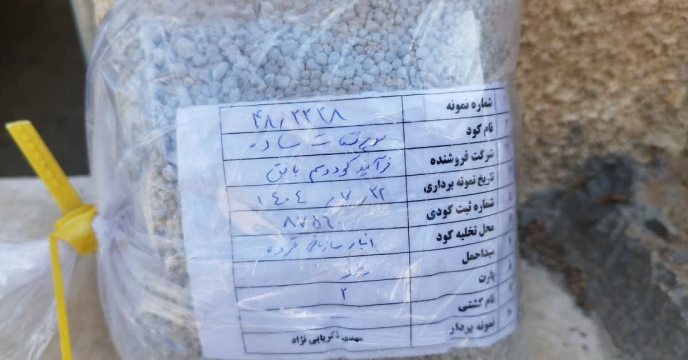 شماره نمونه ۴۸,۲۲۲۸
نام کود سوپر فسفات ساده
شرکت فروشنده فرآیند کود و سم بافق
تاریخ نمونه برداری ۱۴۰۴,۷,۲۲
شماره ثبت کودی ۸۷۵۶
محل تخلیه کود انبار سازمانی
مبداحمل
پارت ۲
نام کشتی
نمونه بردار مهدی ذکریایی نژاد